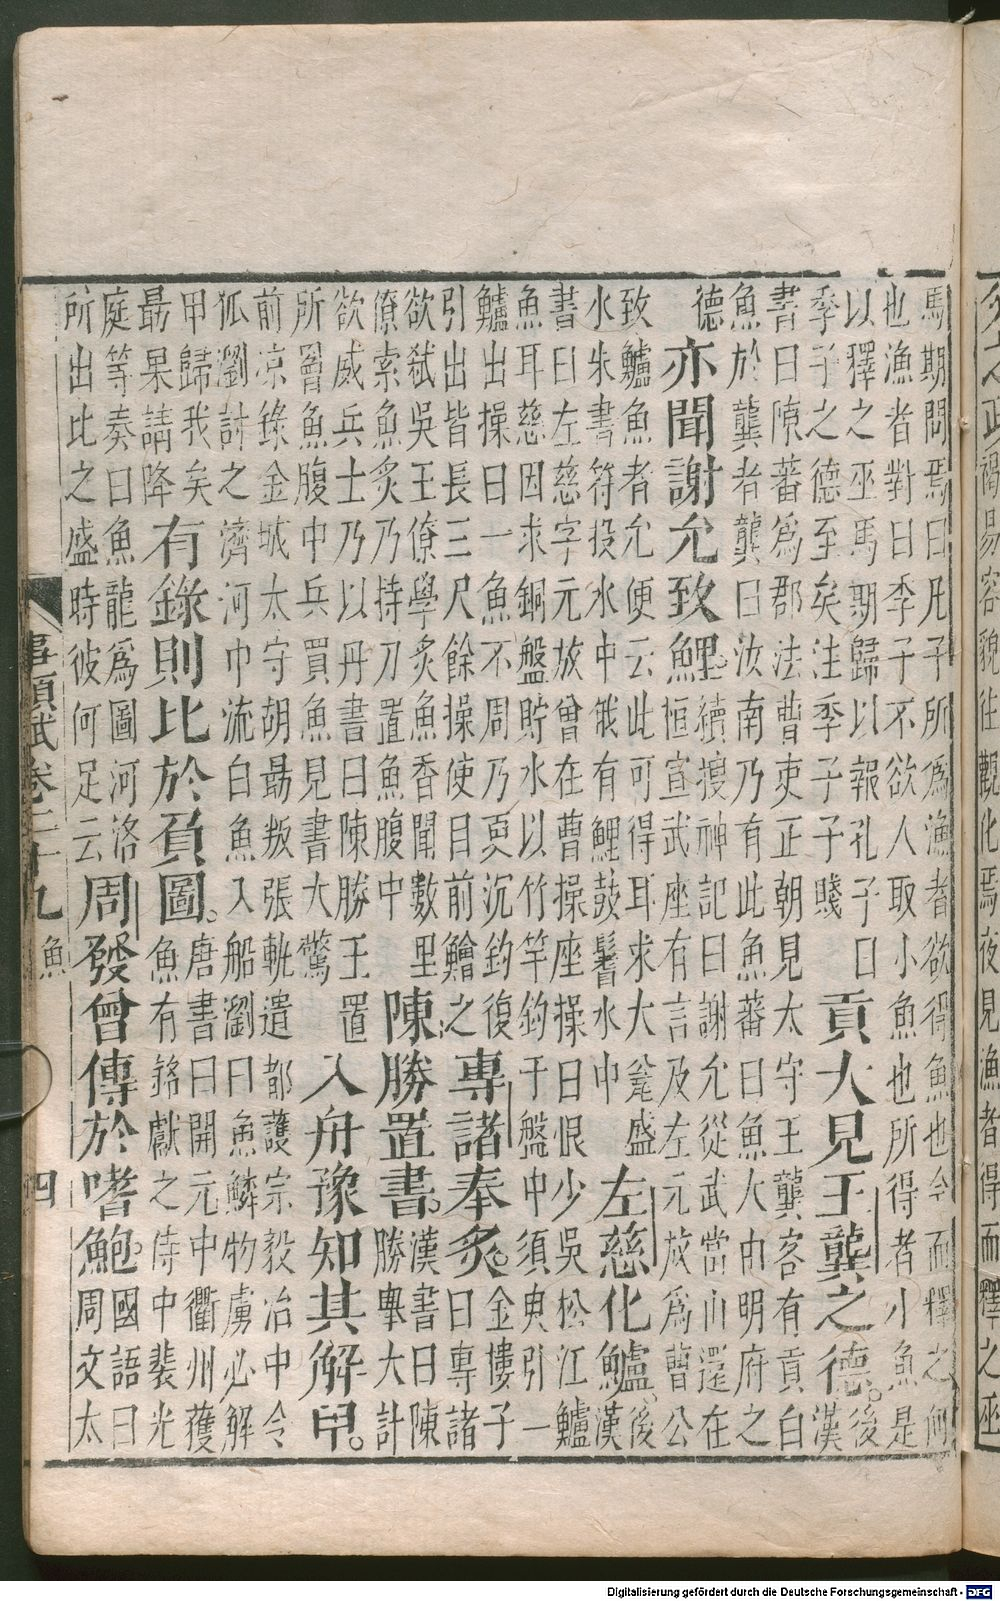 之政褐易容貌往觀化焉夜見漁者得而釋之巫
馬期問焉曰凡子所爲漁者欲得魚也今而釋之何
也漁者對曰季子不欲人取小魚也所得者小魚是
以釋之巫馬期歸以報孔子曰
季子之德至矣注季子子賤
貢大見王龔之德。
後
漢
書曰陳蕃爲郡法曹吏正朝見太守王龔客有貢白
魚於龔者龔曰汝南乃有此魚蕃曰魚大由明府之
德
亦聞謝允致鯉。
續搜神記曰謝允從武當山還在
桓宣武座有言及左元放爲曹公
致鱸魚者允便云此可得耳求大瓮盛
水朱書符投水中俄有鯉鼓鬐水中
左慈化鱸。
後
漢
書曰左慈字元放曾在曹操座操曰恨少吳松江鱸
魚耳慈因求銅盤貯水以竹竿釣于盤中須臾引一
鱸出操曰一魚不周乃更沉釣復
引出皆長三尺餘操使目前鱠之
專諸奉炙。
金樓子
曰專諸
欲弑吳王僚學炙魚香聞數里
僚索魚炙乃持刀置魚腹中
陳勝置書。
漢書曰陳
勝舉大計
欲威兵士乃以丹書曰陳勝王置
所罾魚腹中兵買魚見書大驚
入舟豫知其解甲。
前凉錄金城太守胡勗叛張軌遣都護宗毅治中令
狐瀏討之濟河中流白魚入船瀏曰魚鱗物虜必解
甲歸我矣
勗果請降
有錄則比於負圖。
唐書曰開元中衢州獲
魚有銘獻之侍中裴光
庭等奏曰魚龍爲圖河洛
所出比之盛時彼何足云
周發曾傳於嗜鮑。
國語曰
周文太
事類賦卷二十九 魚 四
Digitalisierung gefördert durch die Deutsche Forschungsgemeinschaft - DFG